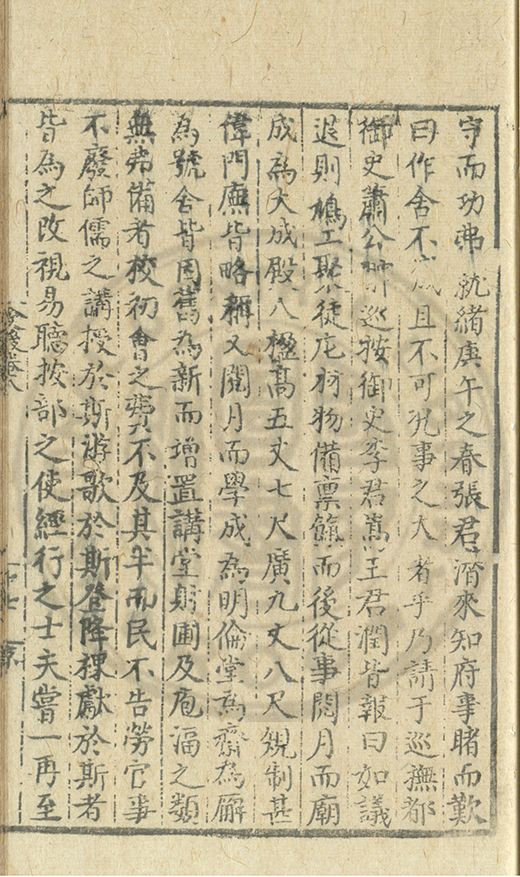 守而功弗就緒庚午之春張君濟來知府事睹而歎
曰作舍不成且不可況事之大者乎乃請于巡撫都
御史蕭公翀巡按御史李君嵩王君潤皆報曰如議
退則鳩工聚徒庀材物備稟餼而後從事閱月而廟
成為大成殿八楹高五丈七尺廣九丈八尺規制甚
偉門廡皆略稱又閱月而學成為明倫堂為齋為廨
為號舍皆因舊為新而增置講堂射圃及庖湢之類
無弗備者校初會之費不及其半而民不告勞官事
不廢師儒之講授於斯游歌於斯登降祼獻於斯者
皆為之改視易聽按部之使經行之士夫嘗一再至